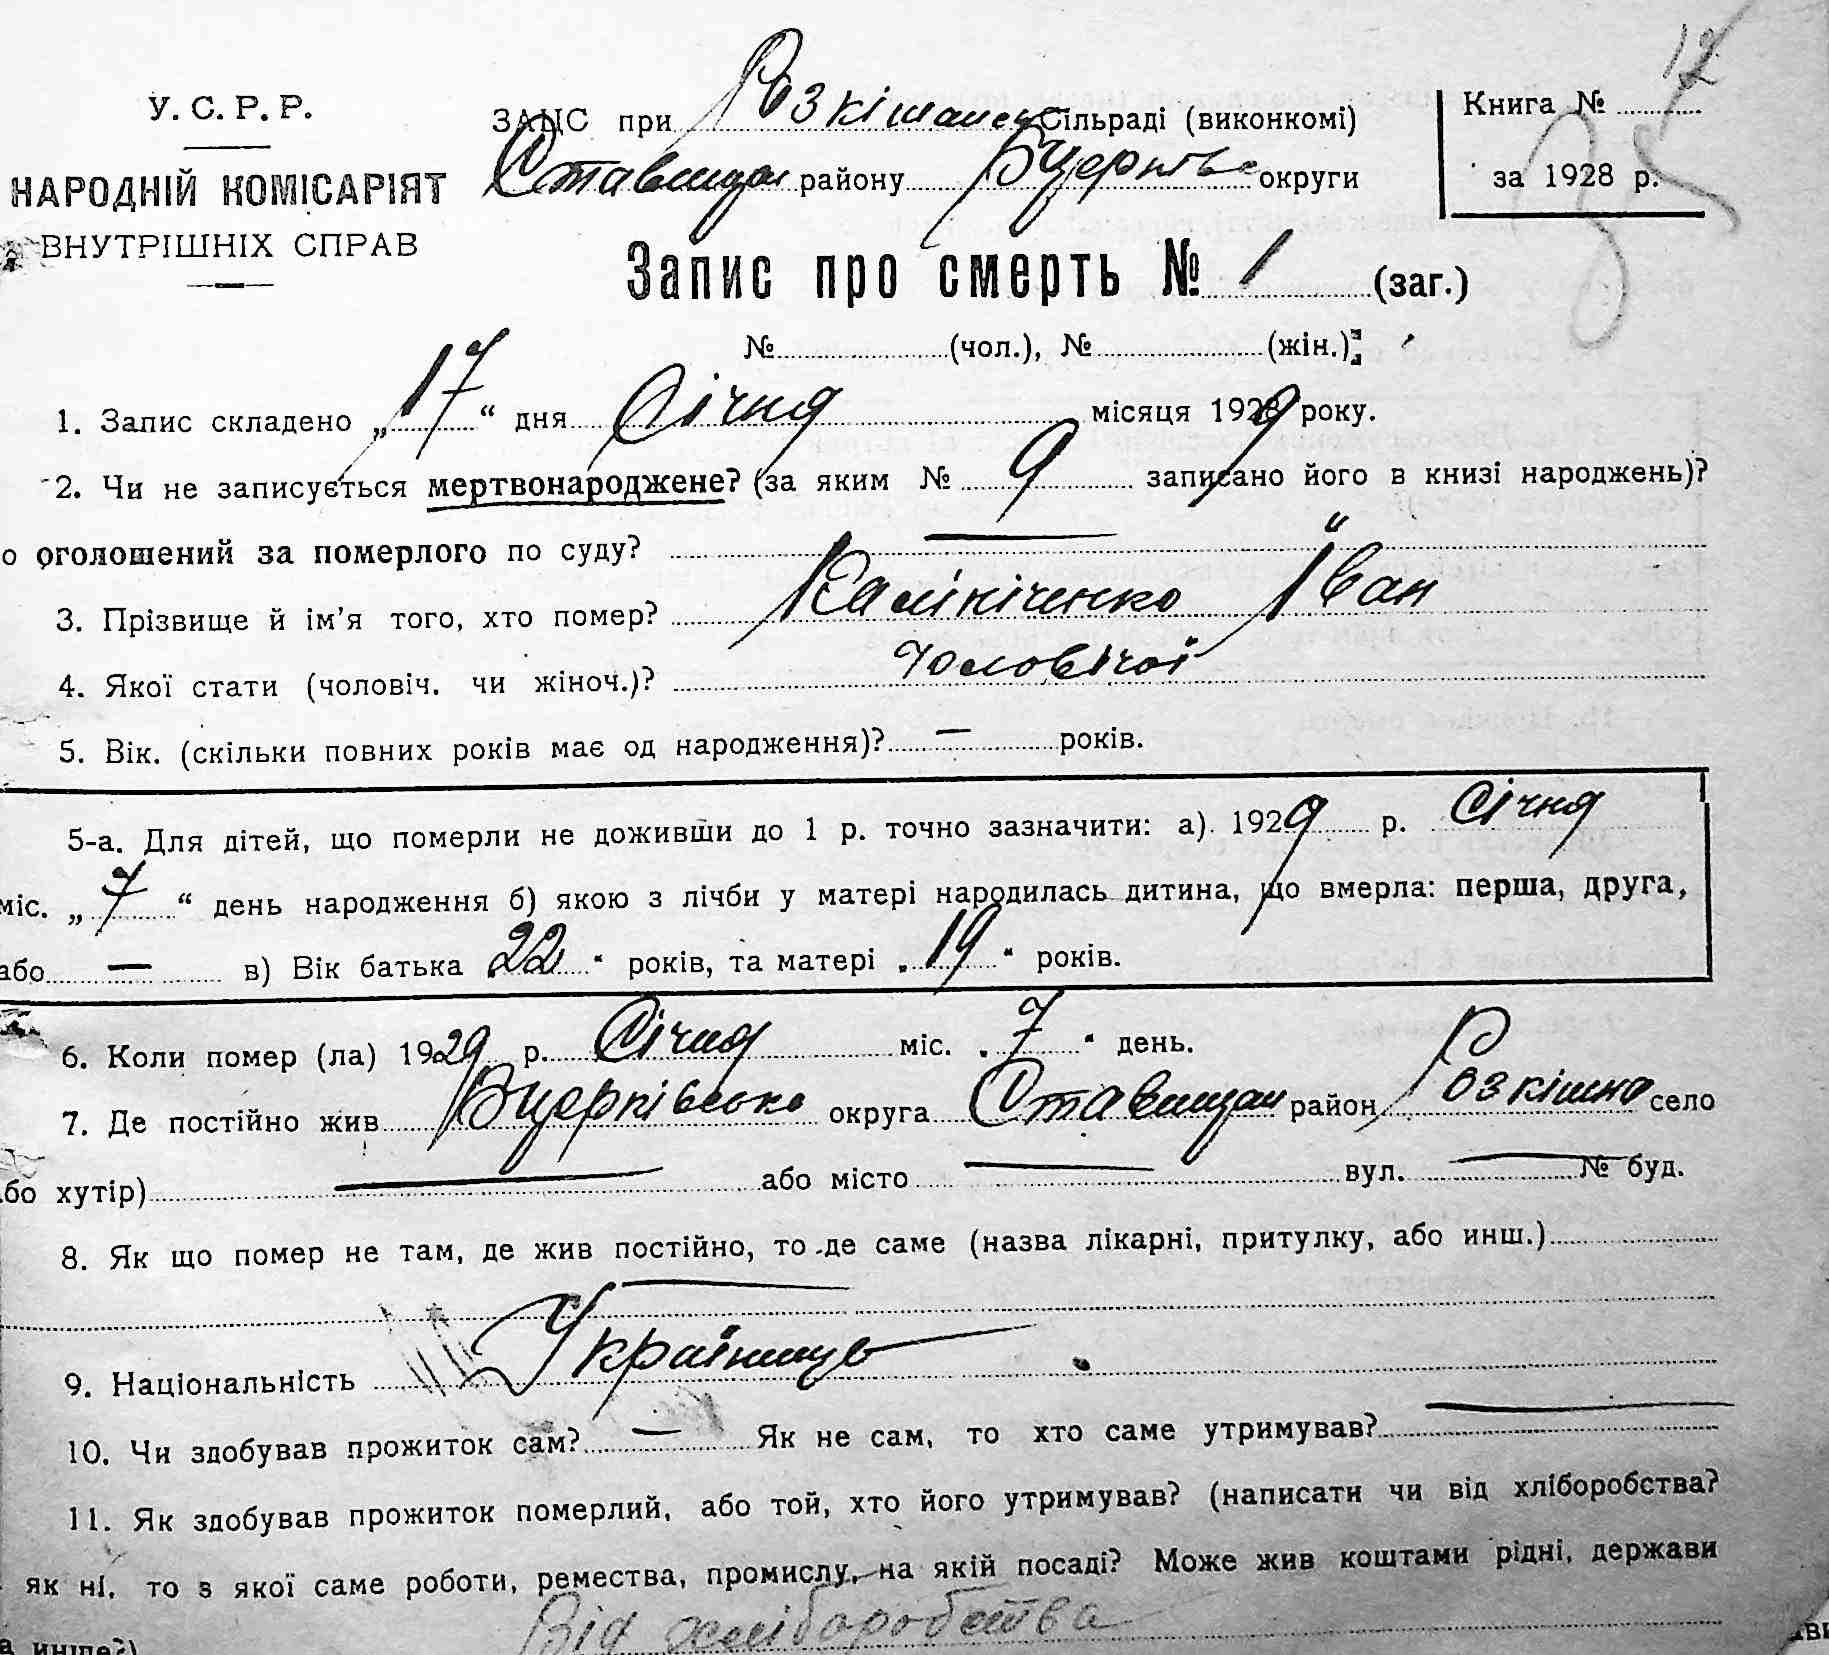 17
У. С. Р. Р.
НАРОДНІЙ КОМІСАРІЯТ
ВНУТРІШНІХ СПРАВ
ЗАЦС при Розкішанск Сільраді (виконкомі)
Ставищан району Бцерківс округи
Книга № 
за 1928 р.
Запис про смерть № 1 (заг.)
№ (чол.), № (жін.)
1. Запис складено „17“ дня Січня місяця 1929 року.
2. Чи не записується мертвонароджене? (за яким № 9 записано його в книзі народжень)?
о оголошений за померлого по суду? —
3. Прізвище й ім'я того, хто помер? Калініченко Іван
4. Якої стати (чоловіч. чи жіноч.)? чоловічої
5. Вік. (скільки повних років має од народження)? — років.
5-а. Для дітей, що померли не доживши до 1 р. точно зазначити: а) 1929 р. Січня
міс. „7“ день народження б) якою з лічби у матері народилась дитина, що вмерла: перша, друга,
або — в) Вік батька 22 років, та матері 19 років.
6. Коли помер (ла) 1929 р. Січня міс. 7 день.
7. Де постійно жив Бцерківсько округа Ставищан район, Розкішна село
бо хутір) — або місто — вул. — № буд.
8. Як що помер не там, де жив постійно, то де саме (назва лікарні, притулку, або инш.)
—
9. Національність Українець
10. Чи здобував прожиток сам? — Як не сам, то хто саме утримував? —
11. Як здобував прожиток померлий, або той, хто його утримував? (написати чи від хліборобства?
як ні, то з якої саме роботи, ремества, промислу, на якій посаді? Може жив коштами рідні, держави
а инше?) Від хліборобства